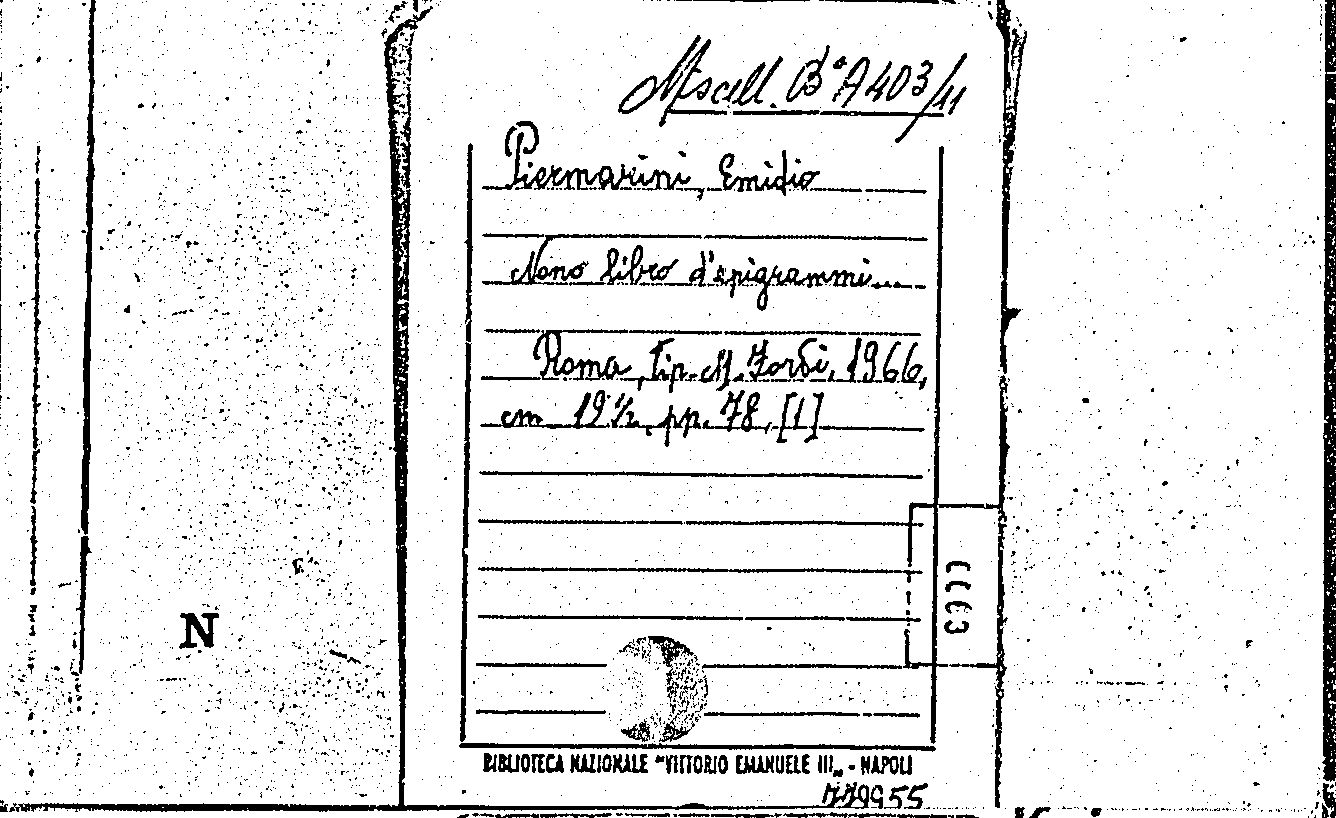 Miscell. Bª A 403/11
Piermarini, Emidio
Nono libro d'epigrammi...
Roma, Tip. M. Fordi, 1966,
cm 19 ½, pp. 78, [1]
N
BIBLIOTECA NAZIONALE "VITTORIO EMANUELE III„ - NAPOLI
779955